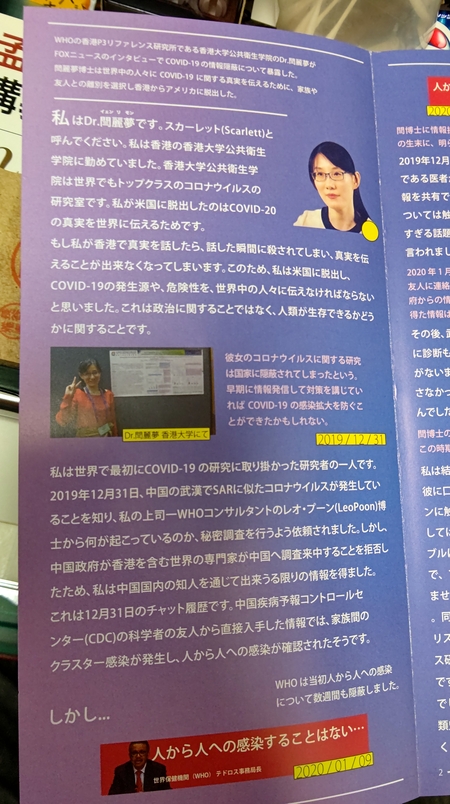 WHOの香港P3リファレンス研究所である香港大学公共衛生学院のDr.閆麗夢が
FOXニュースのインタビューで COVID-19 の情報隠蔽について暴露した。
閆麗夢博士は世界中の人々に COVID-19 に関する真実を伝えるために、家族や
友人との離別を選択し香港からアメリカに脱出した。
イェン リ モン
私はDr.閆麗夢です。スカーレット(Scarlett)と
呼んでください。私は香港の香港大学公共衛生
学院に勤めていました。香港大学公共衛生学
院は世界でもトップクラスのコロナウイルスの
研究室です。私が米国に脱出したのはCOVID-20
の真実を世界に伝えるためです。
もし私が香港で真実を話したら、話した瞬間に殺されてしまい、真実を伝
えることが出来なくなってしまいます。このため、私は米国に脱出し、
COVID-19の発生源や、危険性を、世界中の人々に伝えなければならない
と思いました。これは政治に関することではなく、人類が生存できるかどう
かに関することです。
Dr.閆麗夢 香港大学にて
彼女のコロナウイルスに関する研究
は国家に隠蔽されてしまったという。
早期に情報発信して対策を講じてい
れば COVID-19 の感染拡大を防ぐこ
とができたかもしれない。
2019/12/31
私は世界で最初にCOVID-19 の研究に取り掛かった研究者の一人です。
2019年12月31日、中国の武漢でSARに似たコロナウイルスが発生してい
ることを知り、私の上司ーWHOコンサルタントのレオ・プーン(LeoPoon)博
士から何が起こっているのか、秘密調査を行うよう依頼されました。しかし、
中国政府が香港を含む世界の専門家が中国へ調査来中することを拒否し
たため、私は中国国内の知人を通じて出来うる限りの情報を得ました。
これは12月31日のチャット履歴です。中国疾病予報コントロールセ
ンター(CDC)の科学者の友人から直接入手した情報では、家族間の
クラスター感染が発生し、人から人への感染が確認されたそうです。
WHO は当初人から人への感染
について数週間も隠蔽しました。
しかし...
人から人への感染することはない…
世界保健機関（WHO）テドロス事務局長
2020/01/09
人か
2020
閆博士に情報提
の生末に、明ら
2019年12月
である医者が
報を共有で
ついては触
すぎる話題
言われまし
2020年1月
友人に連絡
府からの情
得た情報は
その後、武
に診断も
がないま
さなかっ
んでした
閆博士の
この時期
私は結
彼に口
ンに触
しては
ブルに
で、
ませ
。同
リス
ス研
です
でい
類
く
2